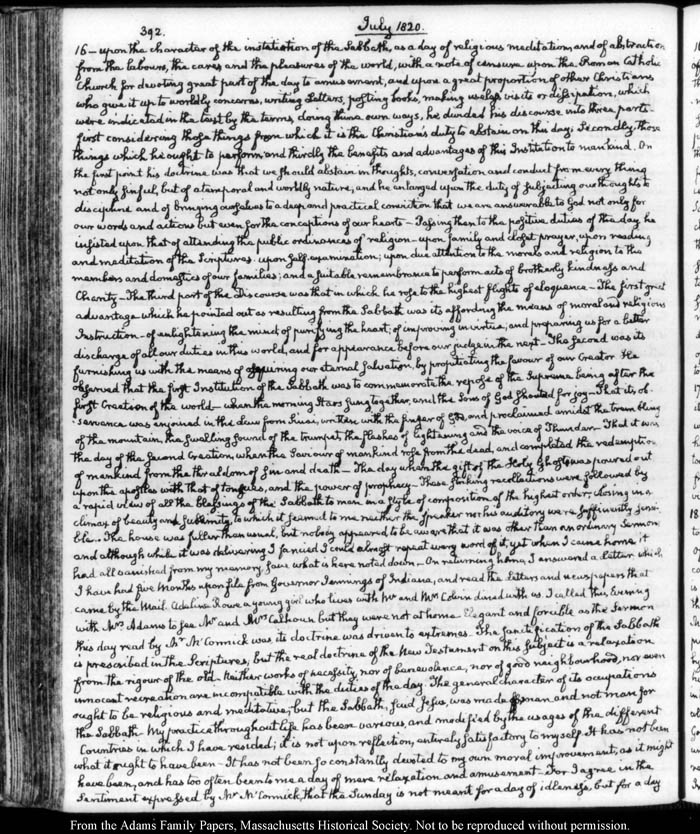 392.
July 1820.
16 — upon the character of the institution of the Sabbath, as a day of religious meditation, and of abstraction
from the labours, the cares and the pleasures of the world, with a note of censure upon the Roman Catholic
Church for devoting great part of the day to amusement, and upon a great proportion of other Christians
who give it up to worldly concerns, writing Letters, posting books, making useless visits or dissipation, which
were indicated in the text by the terms, doing thine own ways, he divided his discourse into three parts.
first considering those things from which it is the Christian's duty to abstain on this day; Secondly, those
things which he ought to perform and thirdly the benefits and advantages of this Institution to mankind. On
the first point his doctrine was that we should abstain in thoughts, conversation and conduct from every thing
not only sinful, but of a temporal and worldly nature; and he enlarged upon the duty of subjecting our thoughts to
discipline and of bringing ourselves to a deep and practical conviction that we are answerable to God not only for
our words and actions but even for the conceptions of our hearts — Passing then to the positive duties of the day he
insisted upon that of attending the public ordinances of religion — upon family and closet prayer, upon reading
and meditation of the Scriptures. upon self-examination; upon due attention to the morals and religion to the
members and domestics of our families; and a suitable remembrance to perform acts of brotherly kindness and
Charity — The third part of the Discourse was that in which he rose to the highest flights of eloquence — The first great
advantage which he pointed out as resulting from the Sabbath was its affording the means of moral and religious
Instruction — of enlightening the mind of purifying the heart; of improving in virtue; and preparing us for a better
discharge of all our duties in this world, and for appearance before our judge in the next — The second was its
furnishing us with the means of assuring our eternal salvation, by propitiating the favour of our Creator He
observed that the first Institution of the Sabbath was to commemorate the repose of the Supreme being after the
first Creation of the world — when the morning Stars sung together, and the Sons of God shouted for joy — That its ob-
servance was enjoined in the law from Sinai, written with the finger of God, and proclaimed amidst the trembling
of the mountain, the swelling sound of the trumpet, the flashes of lightening and the voice of Thunder — That it was
the day of the second Creation, when the Saviour of mankind rose from the dead, and completed the redemption
of mankind from the thraldom of sin and death — The day when the gift of the Holy Ghost was poured out
upon the apostles with that of tongues, and the power of prophecy — These striking recollections were followed by
a rapid view of all the blessings of the Sabbath to man in a style of composition of the highest order; closing in a
climax of beauty and sublimity, to which it seemed to me neither the speaker nor his auditory were sufficiently sensi-
ble. The house was fuller than usual, but nobody appeared to be aware that it was other than an ordinary Sermon
and although while it was delivering I fancied I could almost repeat every word of it, yet when I came home, it
had all vanished from my memory, save what is here noted down — On returning home, I answered a letter which
I have had five Months upon file from Governor Jennings of Indiana, and read the letters and newspapers that
came by the Mail. Adeline Rowe a young girl who lives with Mr and Mrs Colvin dined with us. I called this Evening
with Mrs Adams to see Mr and Mrs Calhoun but they were not at home Elegant and forcible as the Sermon
this day read by Mr McCormick was, its doctrine was driven to extremes. The sanctification of the Sabbath
is prescribed in the Scriptures, but the real doctrine of the New Testament on this subject is a relaxation
from the rigour of the old. Neither works of necessity, nor of benevolence, nor of good neighbourhood, nor even
innocent recreation are incompatible with the duties of the day. The general character of its occupations
ought to be religious and meditative; but the Sabbath, said Jesus, was made for man and not man for
the Sabbath. My practice throughout life has been various, and modified by the usages of the different
Countries in which I have resided; it is not upon reflection, entirely satisfactory to myself. It has not been
what it ought to have been — It has not been so constantly devoted to my own moral improvement, as it might
have been, and has too often been to me a day of mere relaxation and amusement — For I agree in the
Sentiment expressed by Mr McCormick, that the Sunday is not meant for a day of idleness, but for a day
From the Adams Family Papers, Massachusetts Historical Society. Not to be reproduced without permission.